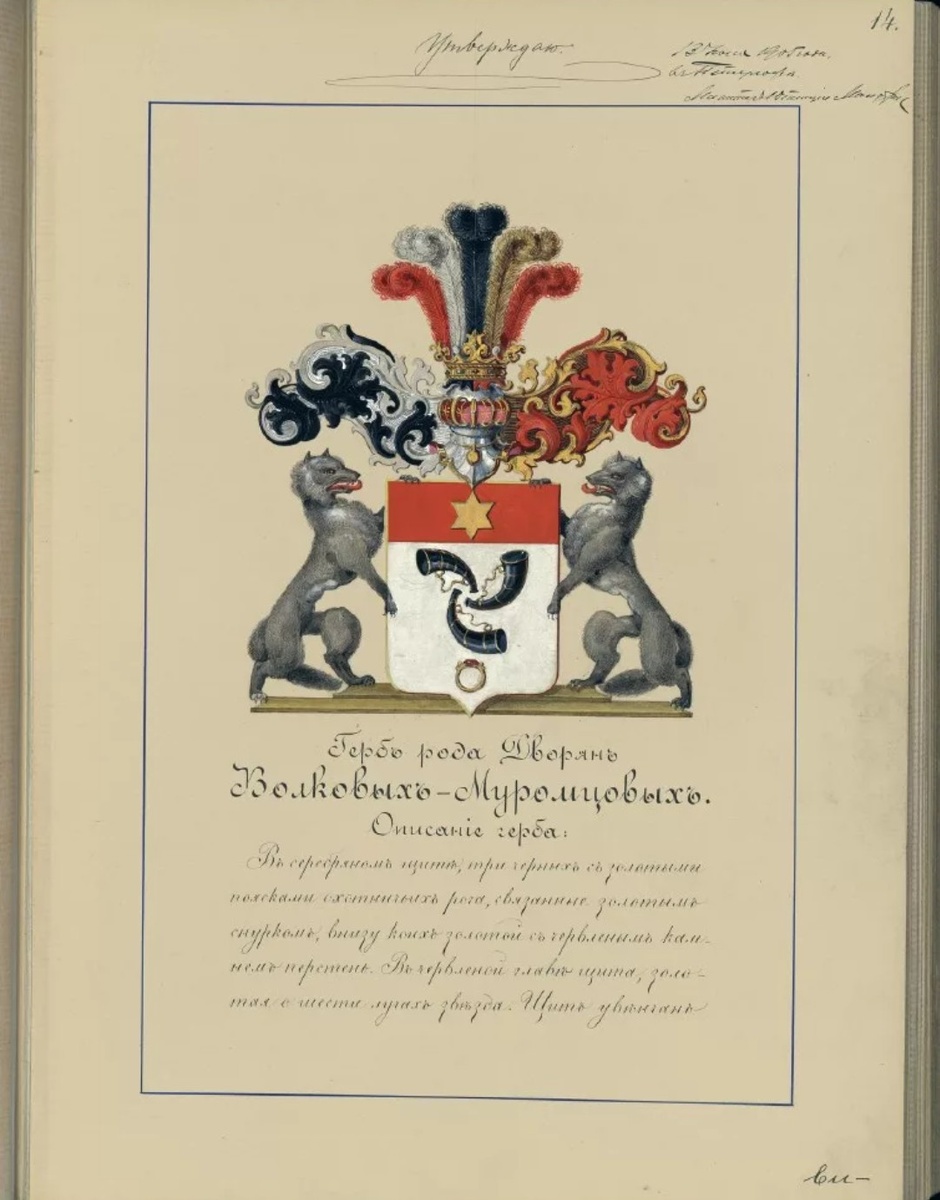 14.
Утверждаю.
Гербъ рода Дворянъ
Волковыхъ-Муромцовыхъ.
Описаніе герба:
Въ серебряномъ щитѣ, три черныхъ съ золотыми
поясками охотничьихъ рога, связанные золотымъ
снуркомъ, внизу коихъ золотой съ червленымъ кам-
немъ перстень. Въ червленой главѣ щита, золо-
тая о шести лучахъ звѣзда. Щитъ увѣнчанъ